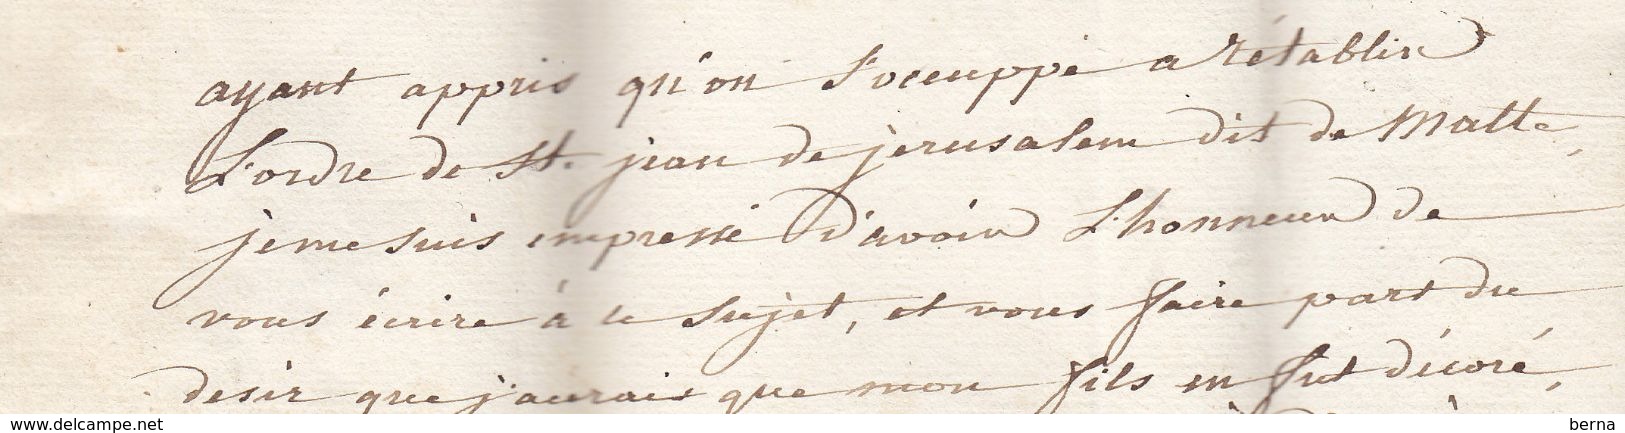 ayant appris qu'on s'occuppe a rétablir
L'ordre de St. jean de jerusalem dit de Malte,
je me suis empressé d'avoir L'honneur de
vous écrire à ce sujet, et vous faire part du
desir que j'aurais que mon fils en fut décoré,
www.delcampe.net
berna